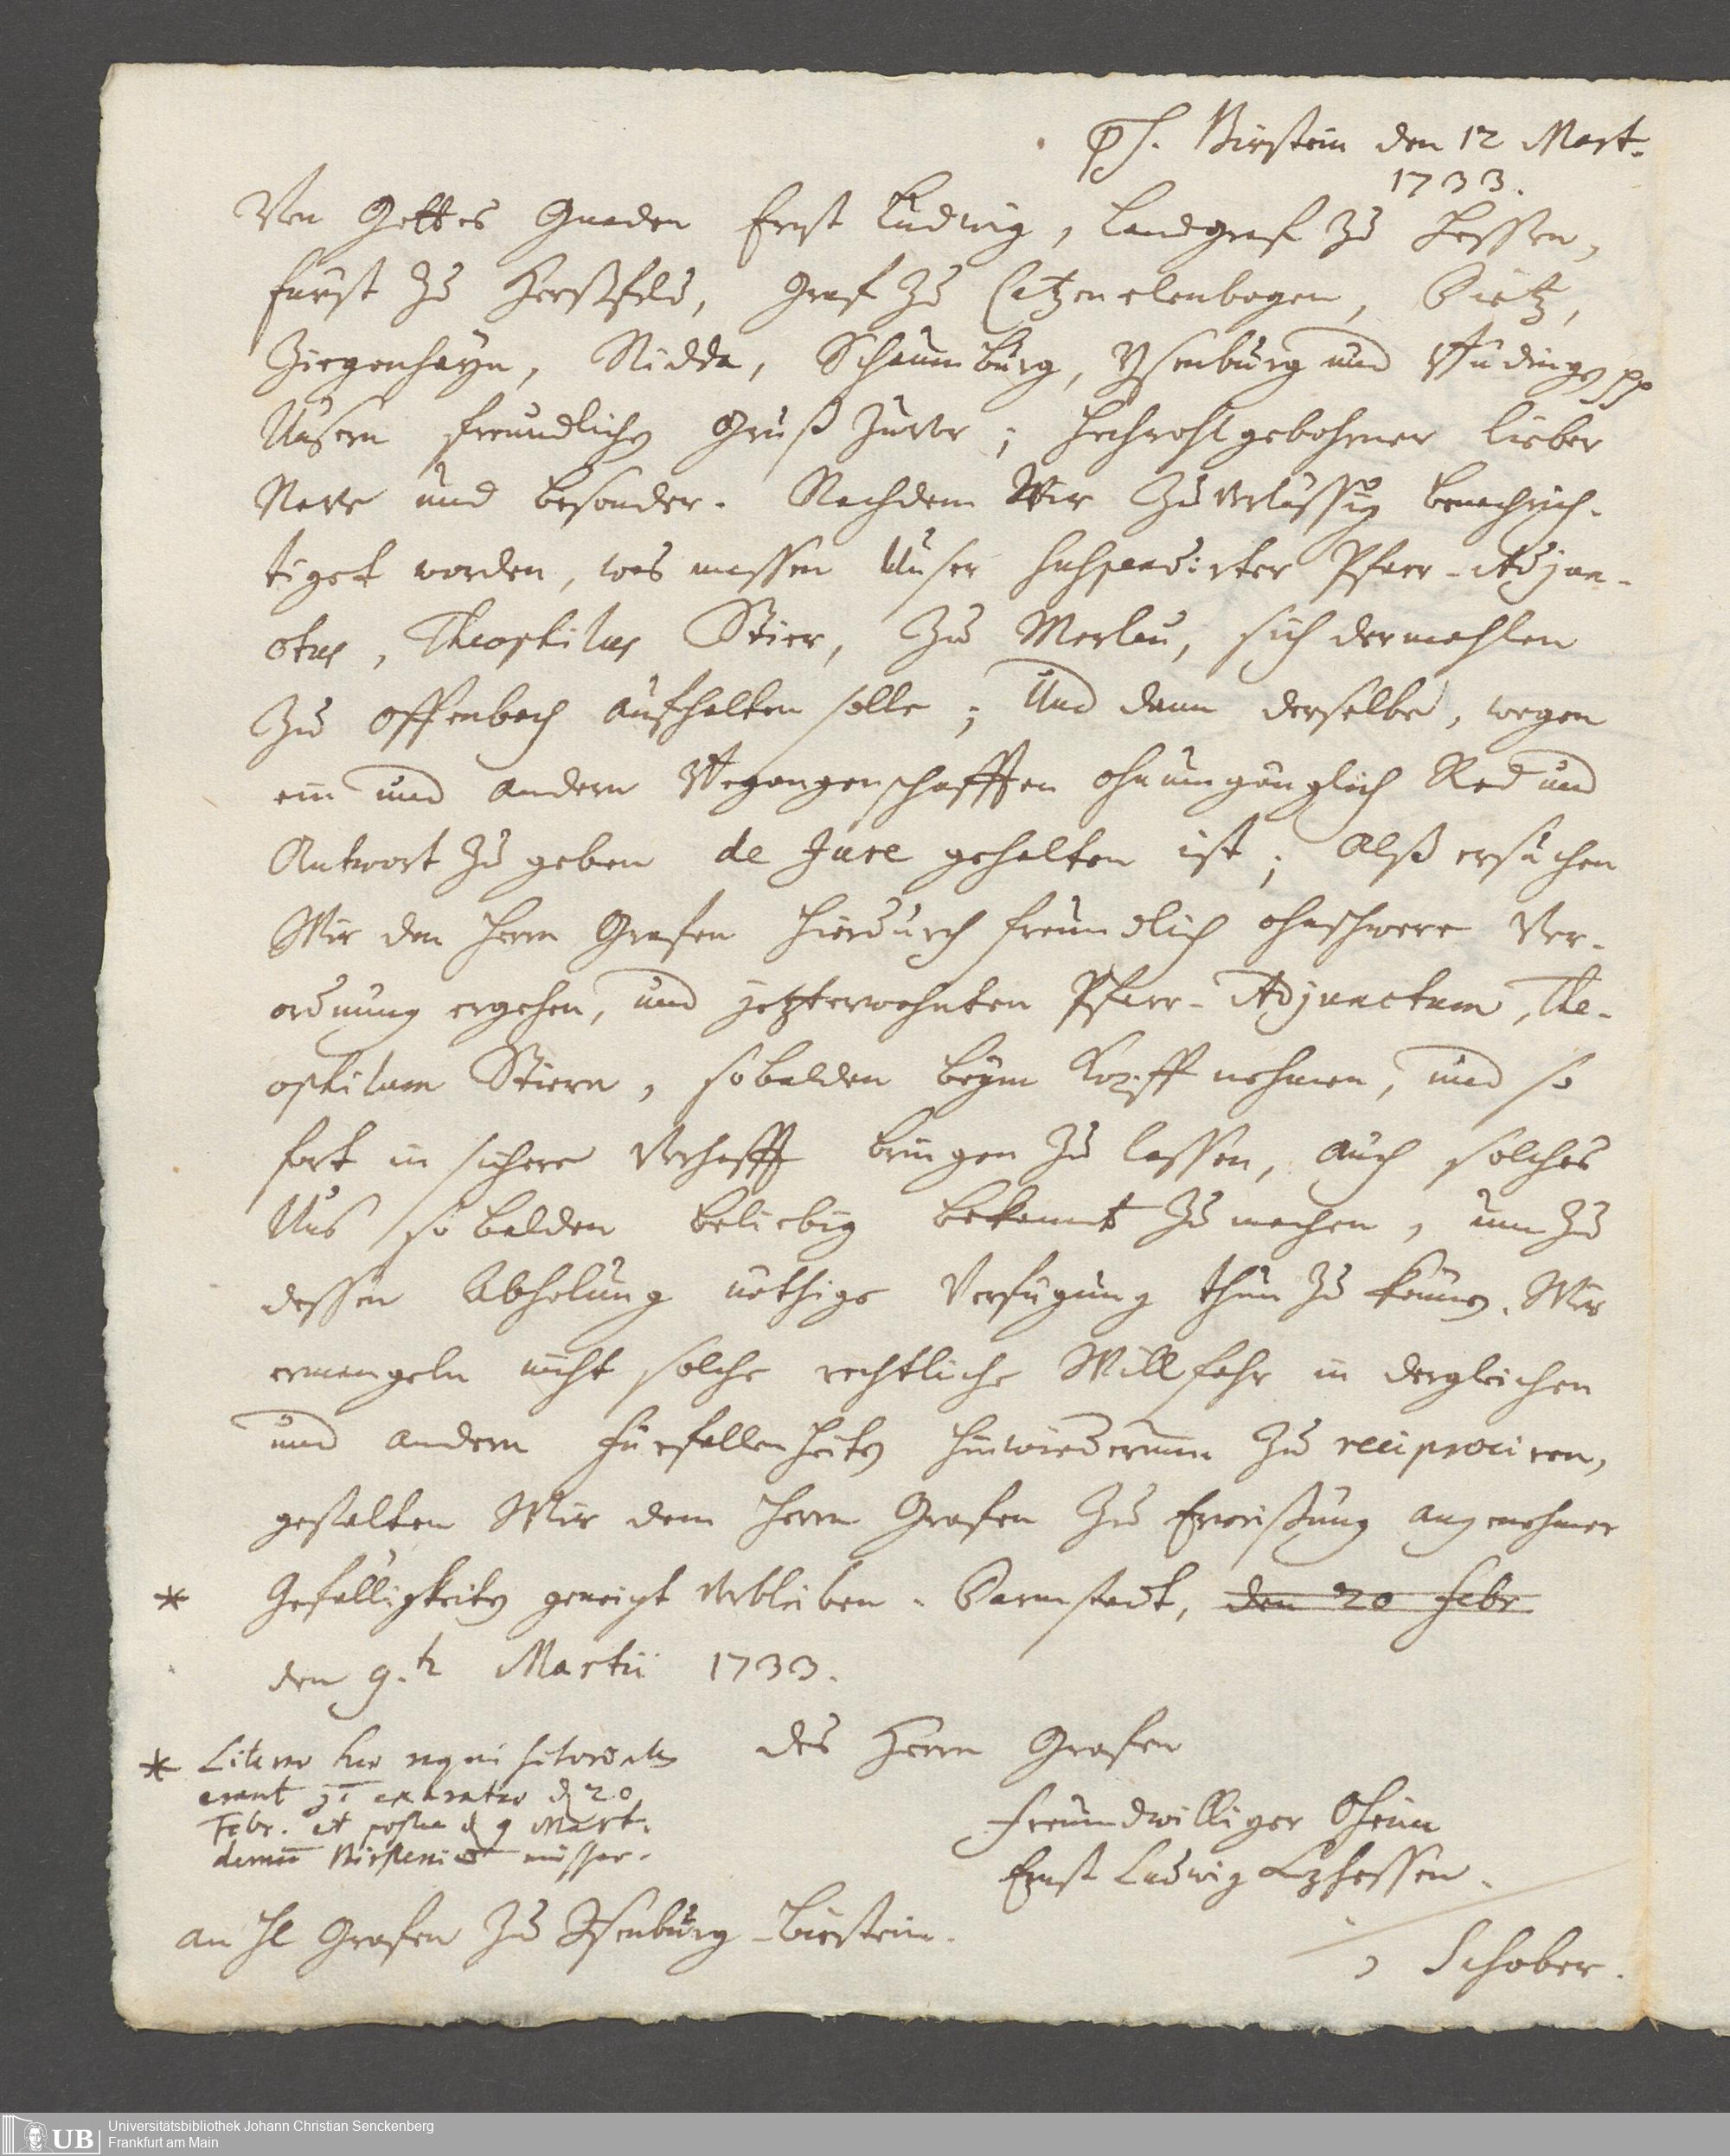 ps. Birstein den 12 Mart.
1733.
Von Gottes Gnaden Ernst Ludwig, Landgraf zu Hessen,
Fürst zu Herßfeld, Graf zu Catzenelenbogen, Dietz,
Ziegenhayn, Nidda, Schaumburg, Ysenburg und Büdingen pp
Unsern freundlichen Gruß zuvor; Hochwohlgebohrner lieber
Neve und besonder. Nachdem Wir zuverlässig benachrich-
tiget worden, was massen Unser suspendirter Pfarr-Adjun-
ctus, Theophilus Stier, zu Merlau, sich dermahlen
zu Offenbach aufhalten solle; Und dann derselbe, wegen
ein und andern Begangenschafften ohnumgänglich Red und
Antwort zu geben de Jure gehalten ist; Alß ersuchen
Wir den Herrn Grafen hierdurch freundlich ohnschwere Ver-
ordnung ergehen, und jetzterwehnten Pfarr-Adjunctum, The-
ophilum Stiern, sobalden beym Kopff nehmen, und so
fort in sichere Verhafft bringen zu lassen, auch solches
Uns so balden beliebig bekannt zu machen, um zu
dessen Abholung nöthige Verfügung thun zu können. Wir
ermangeln nicht solche rechtliche Willfahr in dergleichen
und andern Fürfallenheiten hinwiederum zu reciprociren,
gestalten Wir dem Herrn Grafen zu Erweißung angenehmer
* Gefälligkeiten geneigt verbleiben. Darmstadt, den 20 Febr
den 9.t Martii 1733.
des Herrn Grafen
* Literae hae requisitoriales
erant exaratae d. 20
Febr. et postea d. 9 Mart.
demum Birsteinium missae.
Freundwilliger Oheim
Ernst Ludwig LzHessen.
an H Grafen zu Isenburg-Birstein.
Schober.
UB
Universitätsbibliothek Johann Christian Senckenberg
Frankfurt am Main